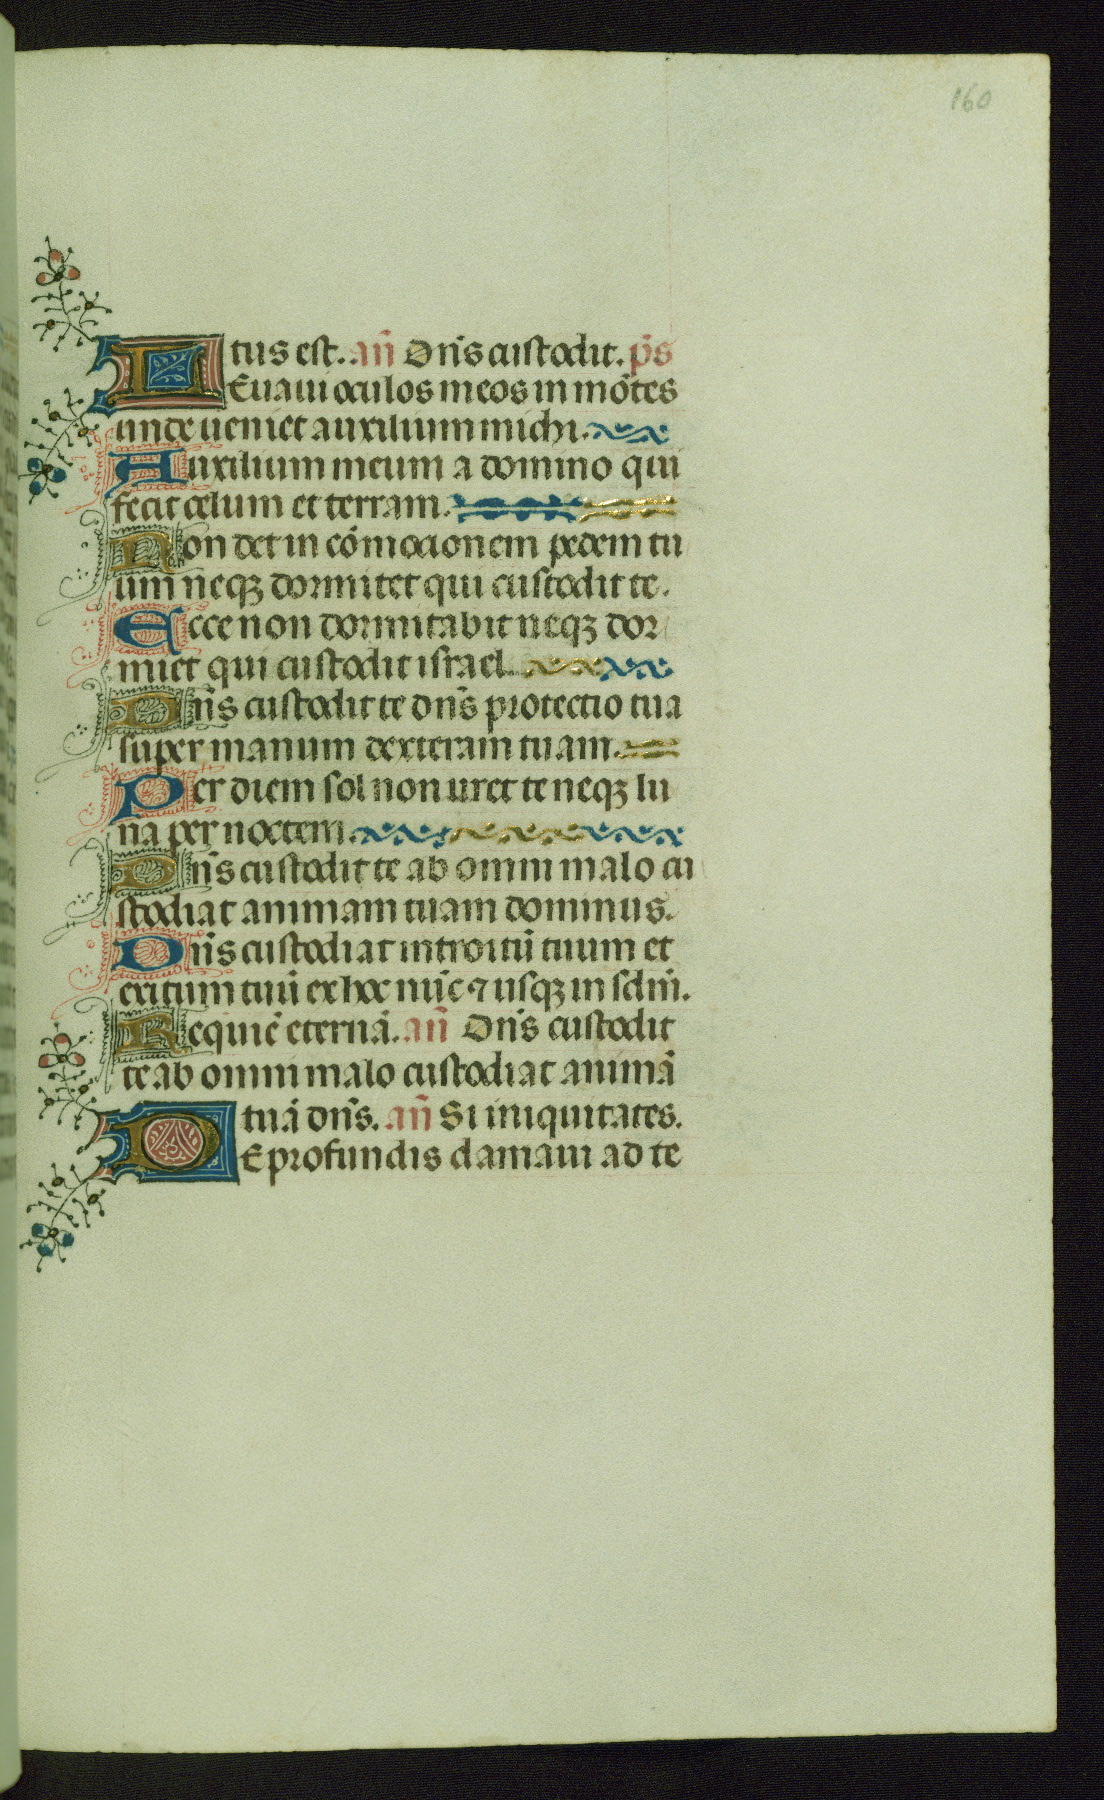 160
tus est. an̄ Dn̄s custodit. ps̄
LEuaui oculos meos in mōtes
unde ueniet auxilium michi.
Auxilium meum a domino qui
fecit celum et terram.
Non det in cōmocionem pedem tu
um neqꝫ dormitet qui custodit te.
Ecce non dormitabit neqꝫ dor
miet qui custodit israel.
Dn̄s custodit te dn̄s protectio tua
super manum dexteram tuam.
Per diem sol non uret te neqꝫ lu
na per noctem.
Dn̄s custodit te ab omni malo cu
stodiat animam tuam dominus.
Dn̄s custodiat introitū tuum et
exitum tuū ex hoc nūc ⁊ usqꝫ in sclm̄.
Requiē eternā. an̄ Dn̄s custodit
te ab omni malo custodiat animā
tuā dn̄s. an̄ Si iniquitates.
DE profundis clamaui ad te